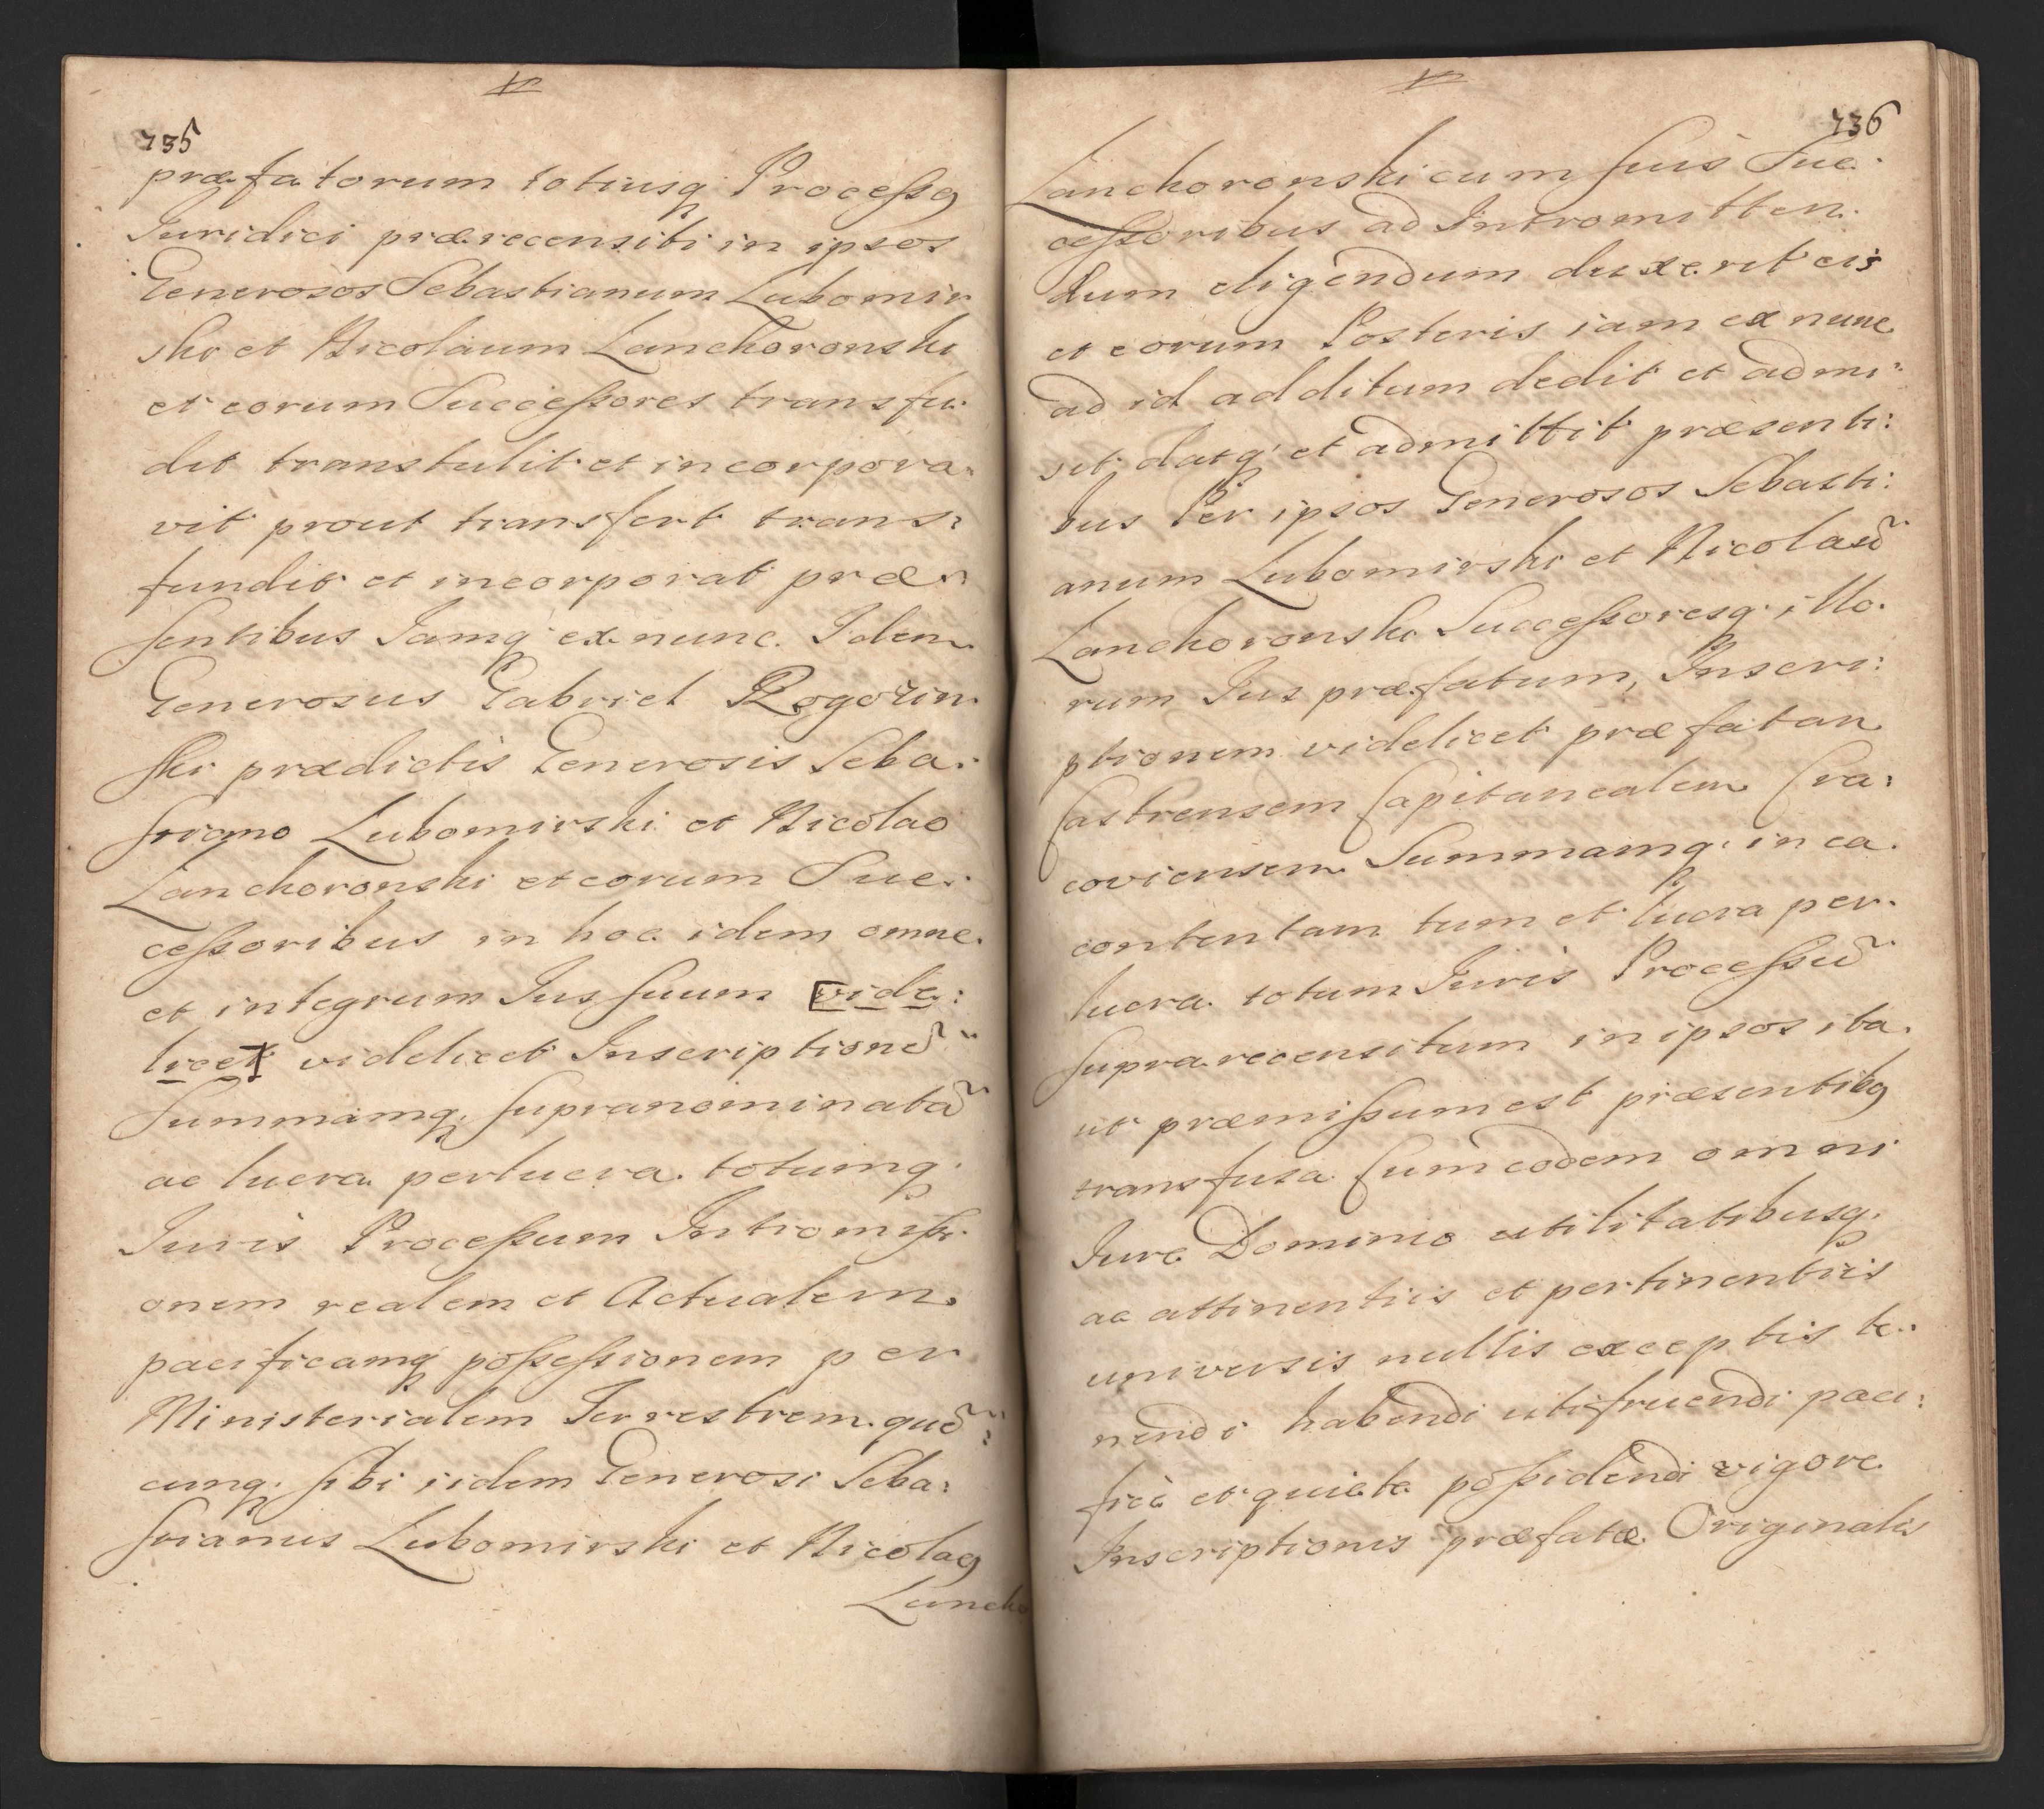 735
præfatorum totiusq Processq
Iuridici prærecensiti in ipsos
Generosos Sebastianum Lubomir
ski et Nicolaum Lanckoronski
et eorum Successores transfu:
dit transtulit et incorpora:
vit prout transfert trans:
fundit et incorporat præ:
sentibus Iamq ex nunc. Idem
Generosus Gabriel Rogożin
ski prædictis Generosis Seba:
stiano Lubomirski et Nicolao
Lanckoronski et eorum Suc:
cessoribus in hoc idem omne
et integrum Jus suum [vide:
licet] videlicet Inscriptionẽ
Summamq. supranominatã
ac lucra perlucra totumq.
Iuris Processum Intromissi:
onem realem et Actualem
pacificamq possessionem per
Ministerialem Terrestrem quẽ
cunq. sibi iidem Generosi Seba:
stianus Lubomirski et Nicolaq
Lancko
736
Lanckoronski cum suis Suc:
cessoribus ad Intromitten:
dum eligendum duxerit eis
et eorum Posteris iam ex nunc
ad id additum dedit et admi:
sit, datq. et admittit præsenti:
bus Per ipsos Generosos Sebasti:
anum Lubomirski et Nicolaũ
Lanckoronski Successoresq. illo:
rum Jus præfatum, Inscri:
ptionem videlicet præfatan
Castrensem Capitanealem Cra:
coviensem Summamq. in ea
contentam tum et lucra per:
lucra totum Iuris Processũ
supra recensitum in ipsos ita
ut præmissum est præsentibq
transfusa Cum eodem omni
Iure Dominio utilitatibusq.
ac attinentiis et pertinentiis
universis nullis exceptis te:
nendi habendi utifruendi paci:
ficè et quiete possidendi vigore
Inscriptionis præfatæ Originalis